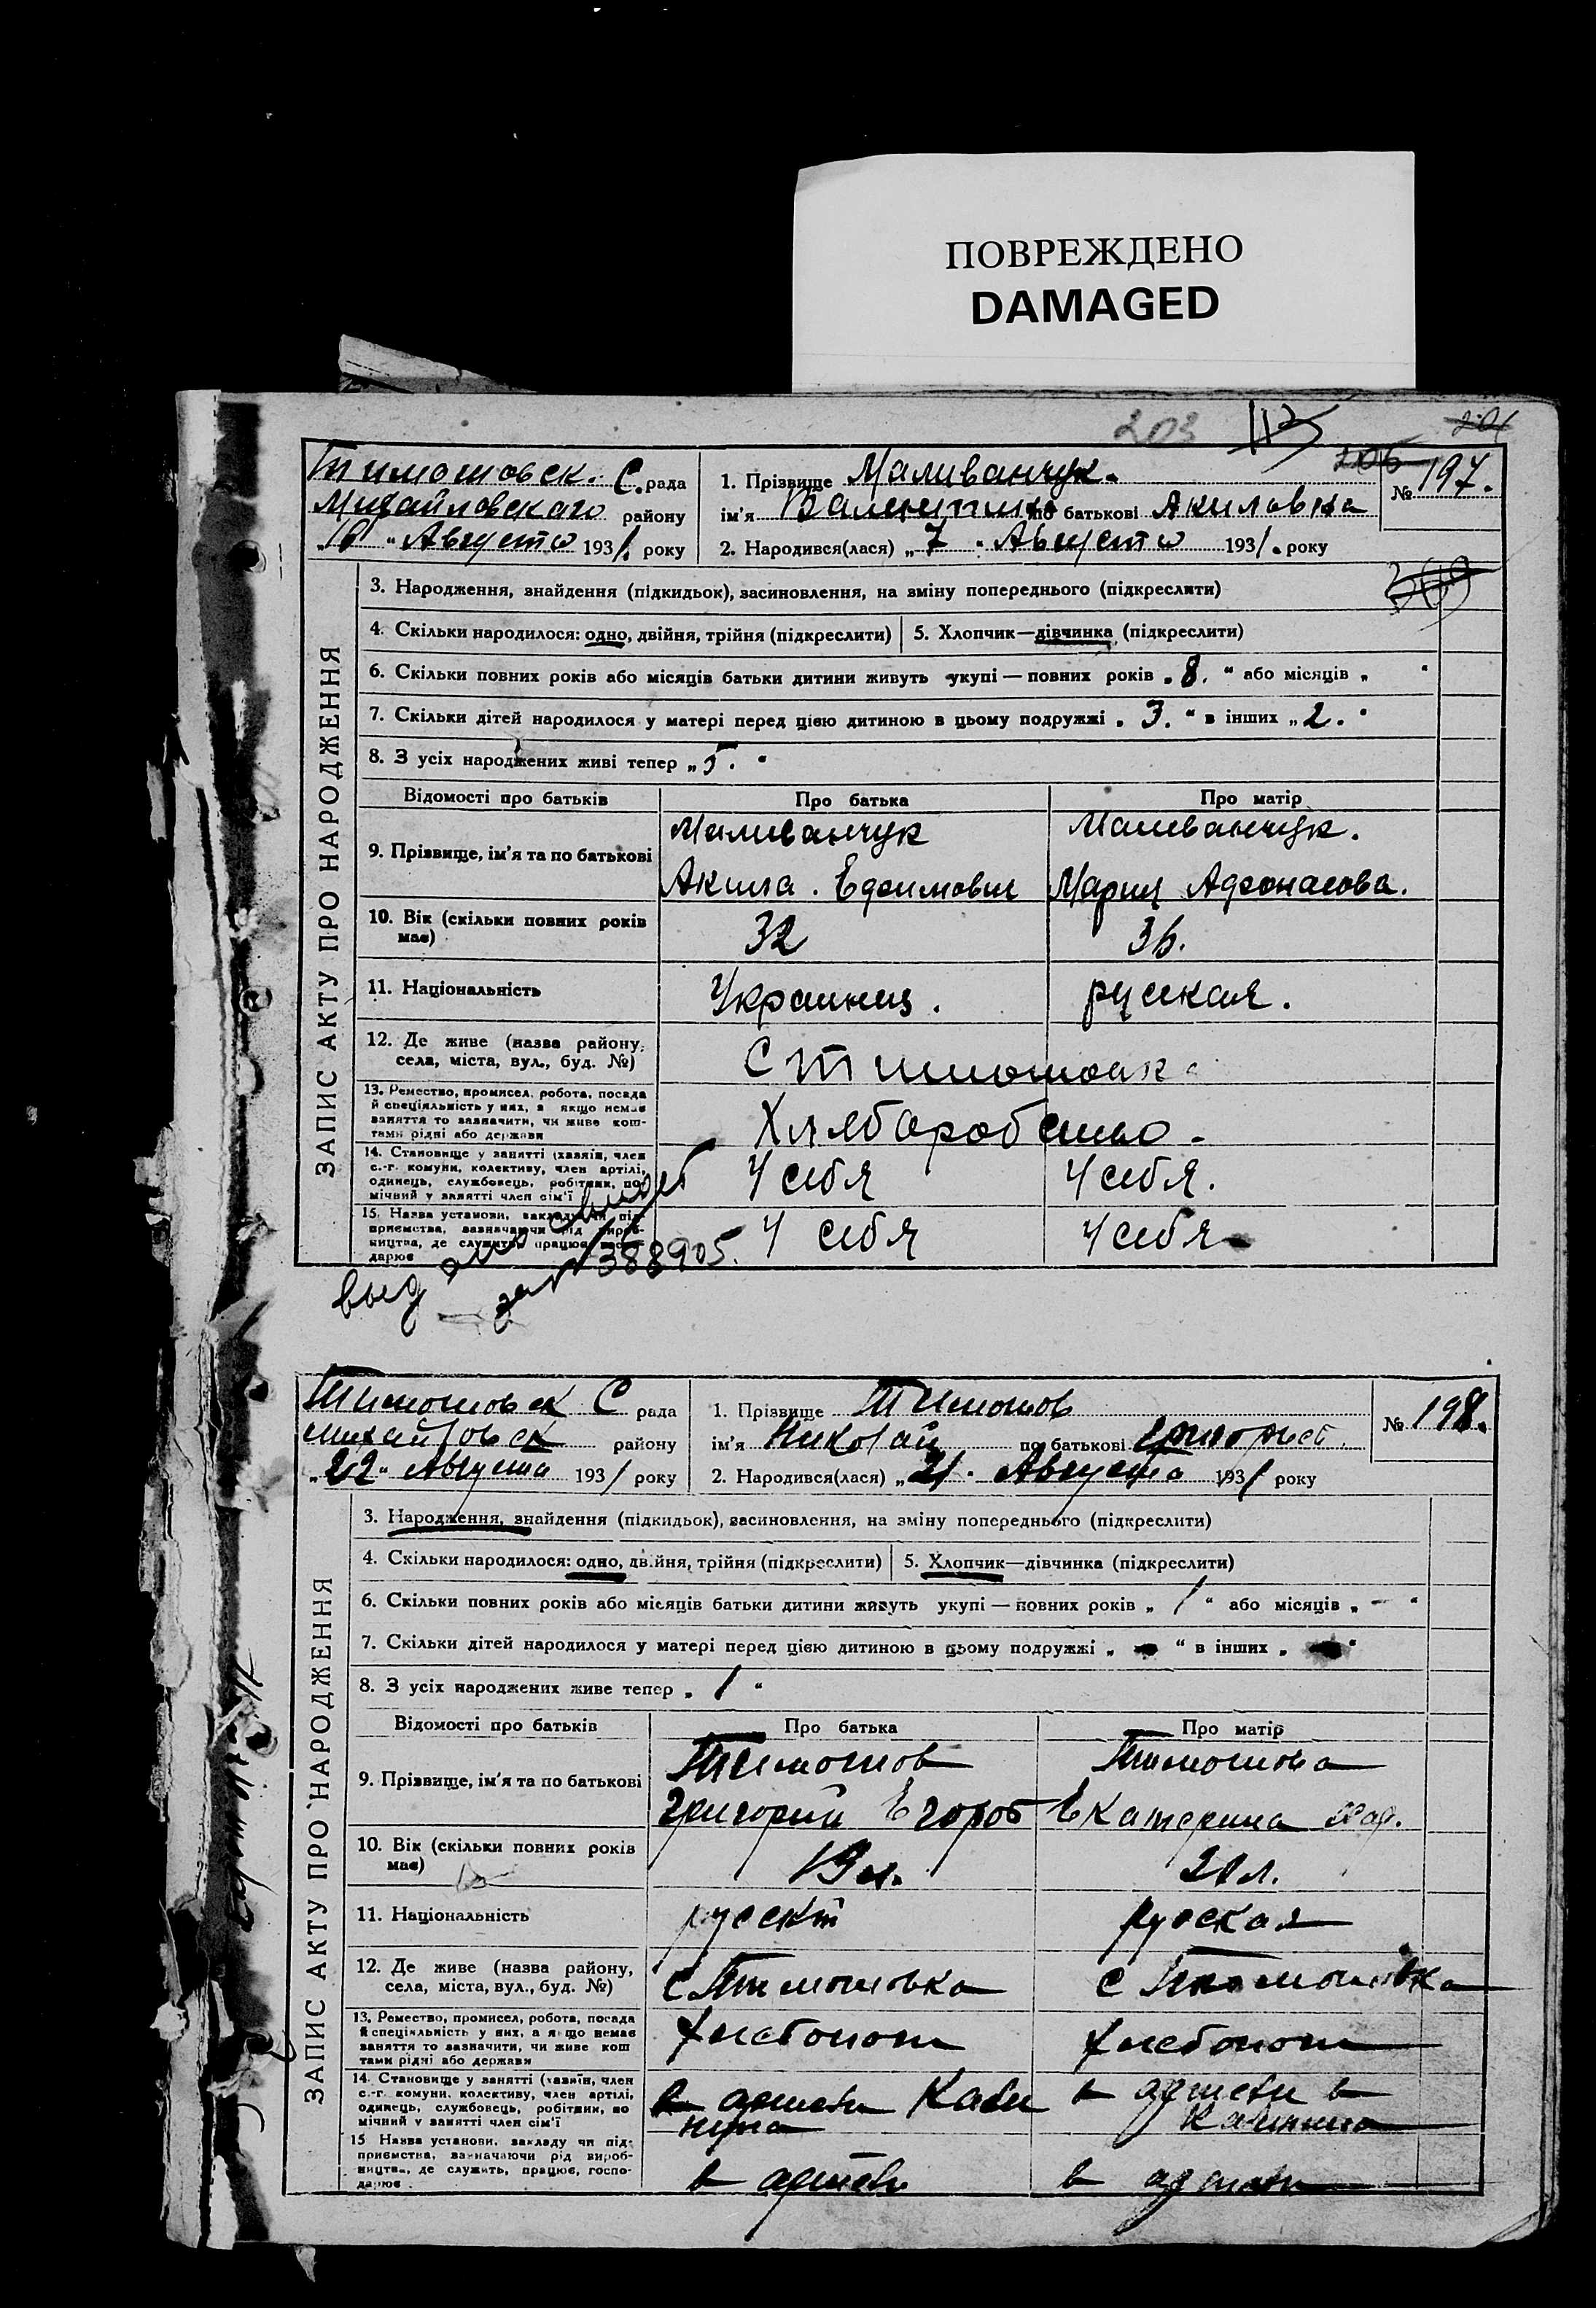 ПОВРЕЖДЕНО
DAMAGED
203
113
№ 197.
Тимошовск. С. рада
Михайловского району
"10" Августа 1931. року
1. Прізвище Маливанчук.
ім'я Валентина по батькові Акиловна
2. Народився(лася) „7" Августа 1931. року
ЗАПИС АКТУ ПРО НАРОДЖЕННЯ
3. Народження, знайдення (підкидьок), засиновлення, на зміну попереднього (підкреслити)
4. Скільки народилося: одно, двійня, трійня (підкреслити)
5. Хлопчик—дівчинка (підкреслити)
6. Скільки повних років або місяців батьки дитини живуть укупі — повних років „8." або місяців „ "
7. Скільки дітей народилося у матері перед цією дитиною в цьому подружжі „3." в інших „2."
8. З усіх народжених живі тепер „5."
Відомості про батьків Про батька Про матір
9. Прізвище, ім'я та по батькові
Маливанчук Маливанчук.
Акила. Ефимович Мария Афонасова.
10. Вік (скільки повних років має) 32 36.
11. Національність Украинец. русская.
12. Де живе (назва району, села, міста, вул., буд. №)
С Тимошовк
13. Ремество, промисел, робота, посада
й спеціяльність у них, а якщо немає
заняття то зазначити, чи живе кош-
тами рідні або держави
Хлябаробство.
14. Становище у занятті (хазяїн, член
с.-г. комуни, колективу, член артілі,
одинець, службовець, робітник, по-
мічний у занятті член сім'ї
У себя У себя.
15. Назва установи, закладу чи під-
приємства, зазначаючи рід вироб-
ництва, де служить, працює, госпо-
дарює
У себя У себя
выд
за № 388905.
№ 198.
Тимошовск С рада
Михайловск району
"22" Августа 1931 року
1. Прізвище Тимошов
ім'я Николай по батькові Григорьев.
2. Народився(лася) „21" Августа 1931 року
ЗАПИС АКТУ ПРО НАРОДЖЕННЯ
3. Народження, знайдення (підкидьок), засиновлення, на зміну попереднього (підкреслити)
4. Скільки народилося: одно, двійня, трійня (підкреслити)
5. Хлопчик—дівчинка (підкреслити)
6. Скільки повних років або місяців батьки дитини живуть укупі — повних років „1" або місяців „—"
7. Скільки дітей народилося у матері перед цією дитиною в цьому подружжі „ " в інших „ "
8. З усіх народжених живе тепер „1"
Відомості про батьків Про батька Про матір
9. Прізвище, ім'я та по батькові
Тимошов Тимошова
Григорий Егоров Екатерина
10. Вік (скільки повних років має) 19 л. 20 л.
11. Національність русский русская
12. Де живе (назва району, села, міста, вул., буд. №)
С Тимошовка С Тимошовка
13. Ремество, промисел, робота, посада
й спеціяльність у них, а якщо немає
заняття то зазначити, чи живе кош
тами рідні або держави
Хлебопаш Хлебопаш
14. Становище у занятті (хазяїн, член
с.-г. комуни, колективу, член артілі,
одинець, службовець, робітник, по
мічний у занятті член сім'ї
в артели Кали в артели в
нина Калинина
15 Назва установи, закладу чи під-
приємства, зазначаючи рід вироб-
ництва, де служить, працює, госпо-
дарює
в артели в артели